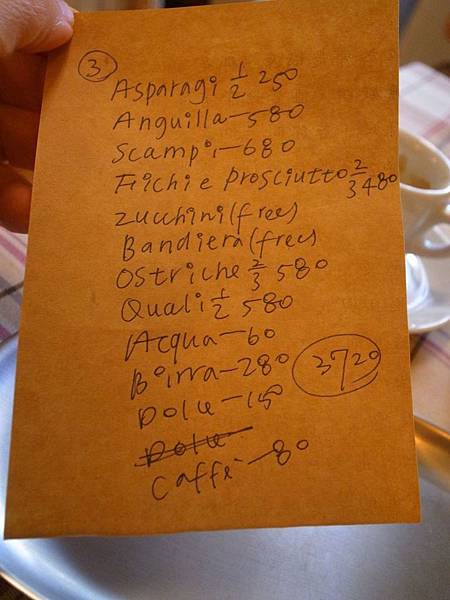 3
Asparagi 1/2 250
Anguilla-580
Scampi-680
Fichi e prosciutto 2/3 480
Zucchini(free)
Bandiera(free)
Ostriche 2/3 580
Quali 1/2 580
Acqua-60
Birra-280
3720
Dolce-150
Dolce
Caffe-80